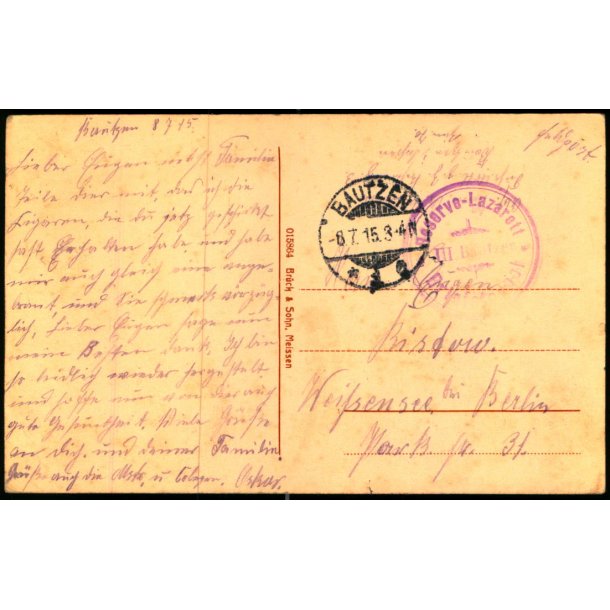 Bautzen 8 7 15.
Lieber Eugen nebst Familie
Teile dir mit, das ich die
Zigaren die du jetz geschickt
hast Erhalten habe und habe
mir auch gleich eine ange-
brant, und Sie schmeckt vorzüg-
lich, Lieber Eugen sage nun
mein Besten Dank. Ich bin
so leidlich wieder hergestellt
und hoffe nun von dir auch
gute Gesundheit. Viele Grüße
an Dich und deiner Familie
Grüße auch die u Collegen. Oskar.
015864 Brück & Sohn, Meissen
Feldpost
BAUTZEN
-8.7.15.3-4N
Reserve-Lazarett
III Bautzen
Eugen
Ristow.
Weißensee bei Berlin
Park Str. 31.